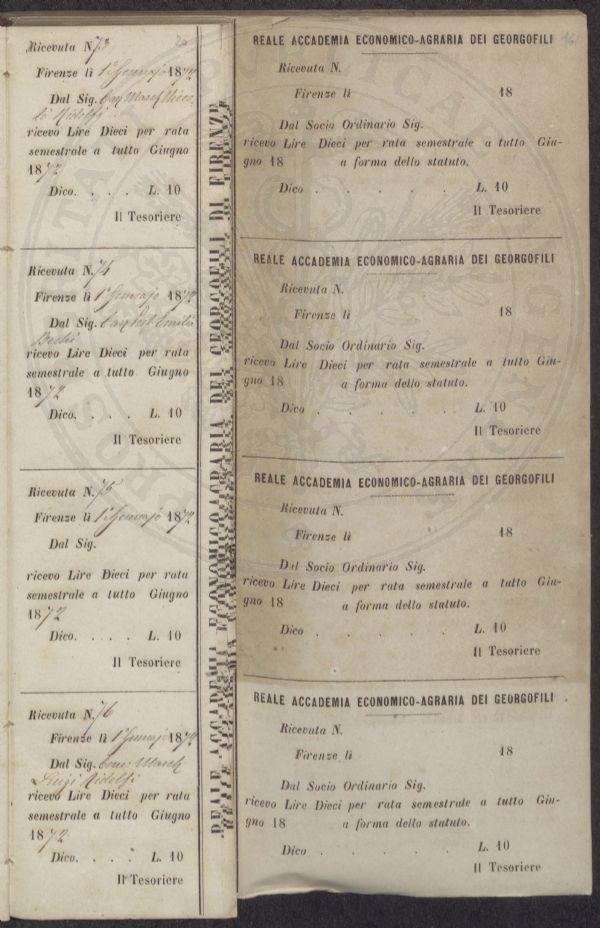 20
Ricevuta N. 73
Firenze li 1° Gennajo 1872
Dal Sig. Cav March Nicco
lò Ridolfi
ricevo Lire Dieci per rata
semestrale a tutto Giugno
1872
Dico. . . . L. 10
Il Tesoriere
Ricevuta N. 74
Firenze li 1° Gennajo 1872
Dal Sig. Cav Emilio
Bechi
ricevo Lire Dieci per rata
semestrale a tutto Giugno
1872
Dico. . . . L. 10
Il Tesoriere
Ricevuta N. 75
Firenze li 1° Gennajo 1872
Dal Sig.
ricevo Lire Dieci per rata
semestrale a tutto Giugno
1872
Dico. . . . L. 10
Il Tesoriere
Ricevuta N. 76
Firenze li 1° Gennajo 1872
Dal Sig. March
Luigi Ridolfi
ricevo Lire Dieci per rata
semestrale a tutto Giugno
1872
Dico. . . . L. 10
Il Tesoriere
REALE ACCADEMIA ECONOMICO-AGRARIA DEI GEORGOFILI DI FIRENZE
REALE ACCADEMIA ECONOMICO-AGRARIA DEI GEORGOFILI
Ricevuta N.
Firenze li 18
Dal Socio Ordinario Sig.
ricevo Lire Dieci per rata semestrale a tutto Giu-
gno 18 a forma dello statuto.
Dico . . . . . L. 10
Il Tesoriere
REALE ACCADEMIA ECONOMICO-AGRARIA DEI GEORGOFILI
Ricevuta N.
Firenze li 18
Dal Socio Ordinario Sig.
ricevo Lire Dieci per rata semestrale a tutto Giu-
gno 18 a forma dello statuto.
Dico . . . . . L. 10
Il Tesoriere
REALE ACCADEMIA ECONOMICO-AGRARIA DEI GEORGOFILI
Ricevuta N.
Firenze li 18
Dal Socio Ordinario Sig.
ricevo Lire Dieci per rata semestrale a tutto Giu-
gno 18 a forma dello statuto.
Dico . . . . . L. 10
Il Tesoriere
REALE ACCADEMIA ECONOMICO-AGRARIA DEI GEORGOFILI
Ricevuta N.
Firenze li 18
Dal Socio Ordinario Sig.
ricevo Lire Dieci per rata semestrale a tutto Giu-
gno 18 a forma dello statuto.
Dico . . . . . L. 10
Il Tesoriere